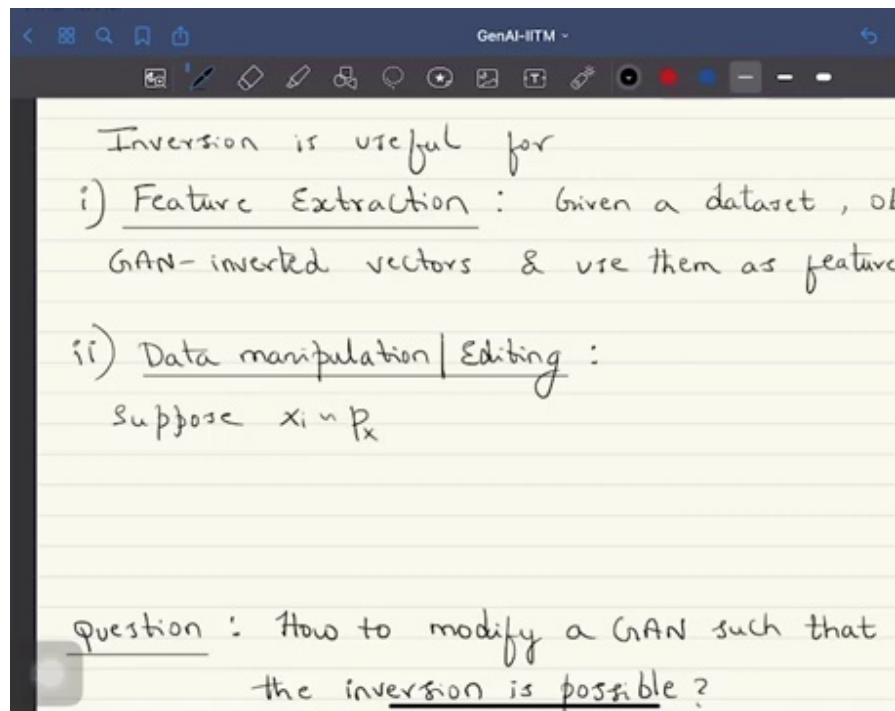 GenAI-IITM
Inversion is useful for
i) Feature Extraction : Given a dataset, ob
GAN-inverted vectors & use them as feature
ii) Data manipulation | Editing :
Suppose xᵢ ~ pₓ
Question : How to modify a GAN such that
the inversion is possible ?